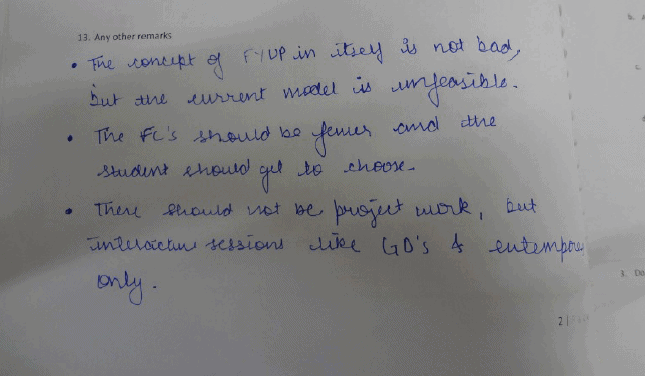 13. Any other remarks
• The concept of FYUP in itself is not bad,
but the current model is unfeasible.
• The FC's should be fewer and the
student should get to choose.
• There should not be project work, but
interactive sessions like GD's & extempore
only.
2 |
3. Do